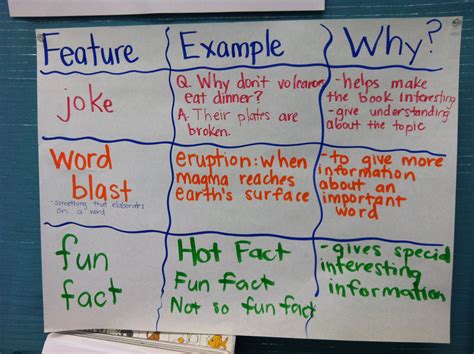 Feature Example Why?
joke
Q. Why don't volcanoes
eat dinner?
A. Their plates are
broken.
-helps make
the book interesting
-give understanding
about the topic
word
blast
-something that elaborates
on a word
eruption: when
magma reaches
earth's surface
-to give more
information
about an
important
word
fun
fact
Hot Fact
Fun fact
Not so fun fact
-gives special
interesting
information